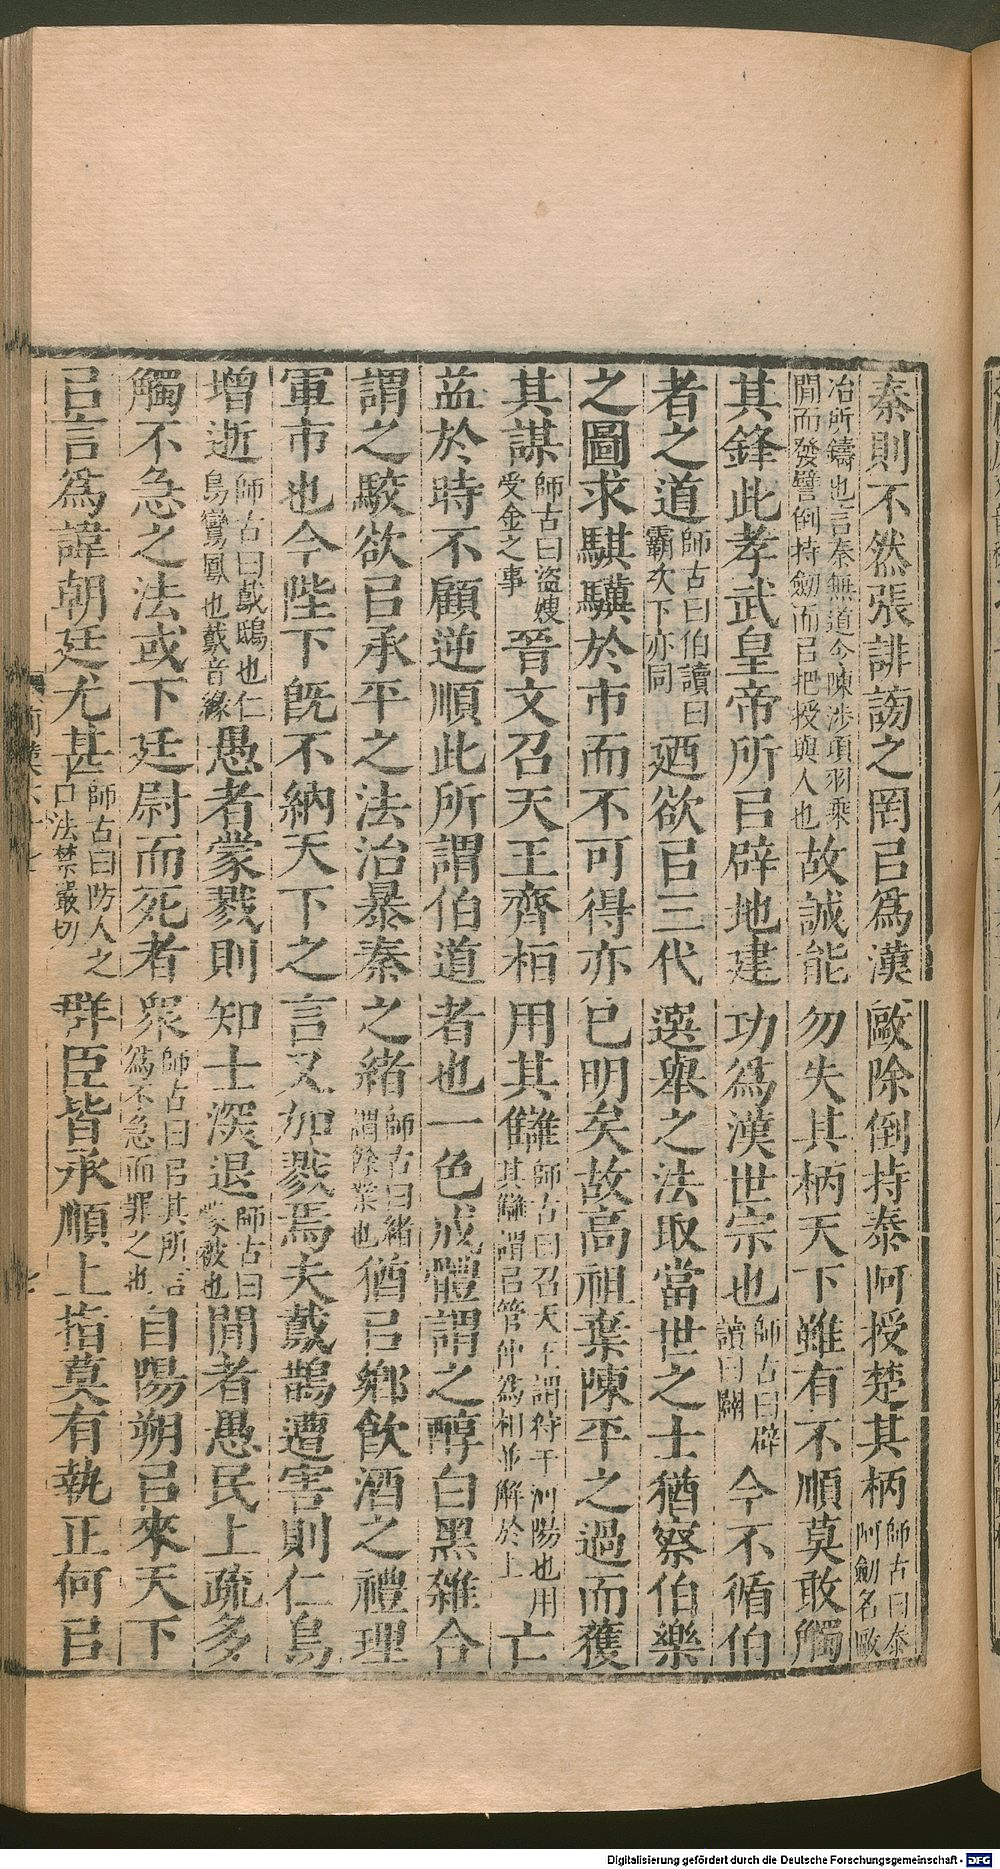 秦則不然張誹謗之罔㠯爲漢敺除倒持泰阿授楚其柄師古曰泰阿劒名歐
冶所鑄也言秦無道令陳涉項羽乘閒而發譬倒持劒而㠯把授與人也故誠能勿失其柄天下雖有不順莫敢觸
其鋒此孝武皇帝所㠯辟地建功爲漢世宗也師古曰辟讀曰闢今不循伯
者之道師古曰伯讀曰霸次下亦同廼欲㠯三代選舉之法取當世之士猶察伯樂
之圖求騏驥於市而不可得亦已明矣故高祖棄陳平之過而獲
其謀師古曰盜嫂受金之事晉文召天王齊桓用其讎師古曰召天王謂狩于河陽也用其讎謂㠯管仲爲相並解於上亡
益於時不顧逆順此所謂伯道者也一色成體謂之醇白黑雜合
謂之駮欲㠯承平之法治暴秦之緒師古曰緒謂餘業也猶㠯鄉飲酒之禮理
軍市也今陛下旣不納天下之言又加戮焉夫䳒鵲遭害則仁鳥
增逝師古曰䳒鴟也仁鳥鸞鳳也䳒音緣愚者蒙戮則知士深退師古曰蒙被也閒者愚民上疏多
觸不急之法或下廷尉而死者衆師古曰㠯其所言爲不急而罪之也自陽朔㠯來天下
㠯言爲諱朝廷尤甚師古曰防人之口法禁嚴切群臣皆承順上指莫有執正何㠯
Digitalisierung gefördert durch die Deutsche Forschungsgemeinschaft - DFG